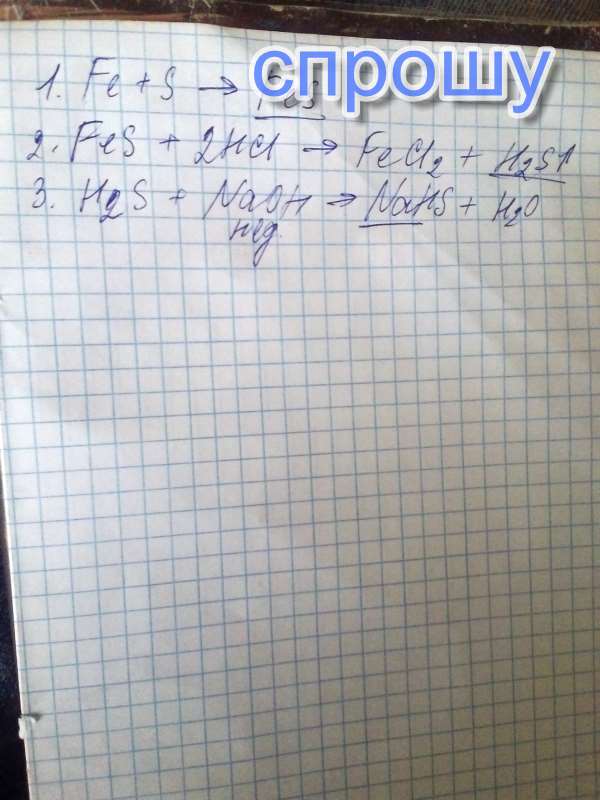 спрошу
1. Fe + S → FeS
2. FeS + 2HCl → FeCl₂ + H₂S↑
3. H₂S + NaOH → NaHS + H₂O
нед.